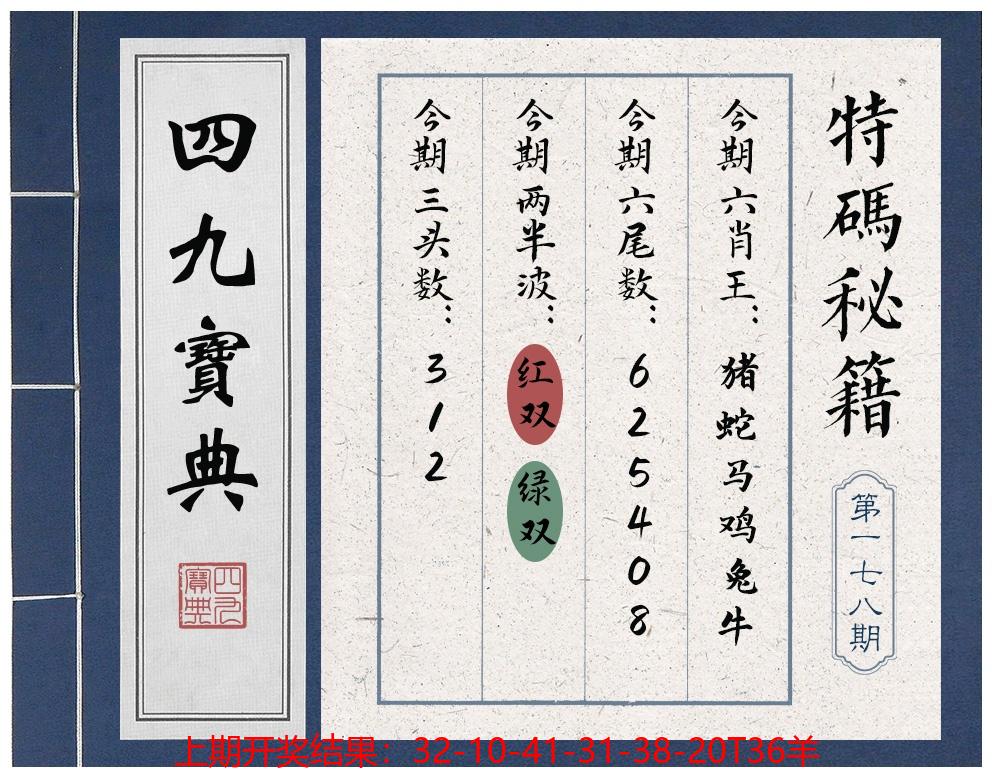 特碼秘籍
第一七八期
今期六肖王：猪蛇马鸡兔牛
今期六尾数：625408
今期两半波：红双 绿双
今期三头数：312
四九寶典
四九寶典
上期开奖结果：32-10-41-31-38-20T36羊